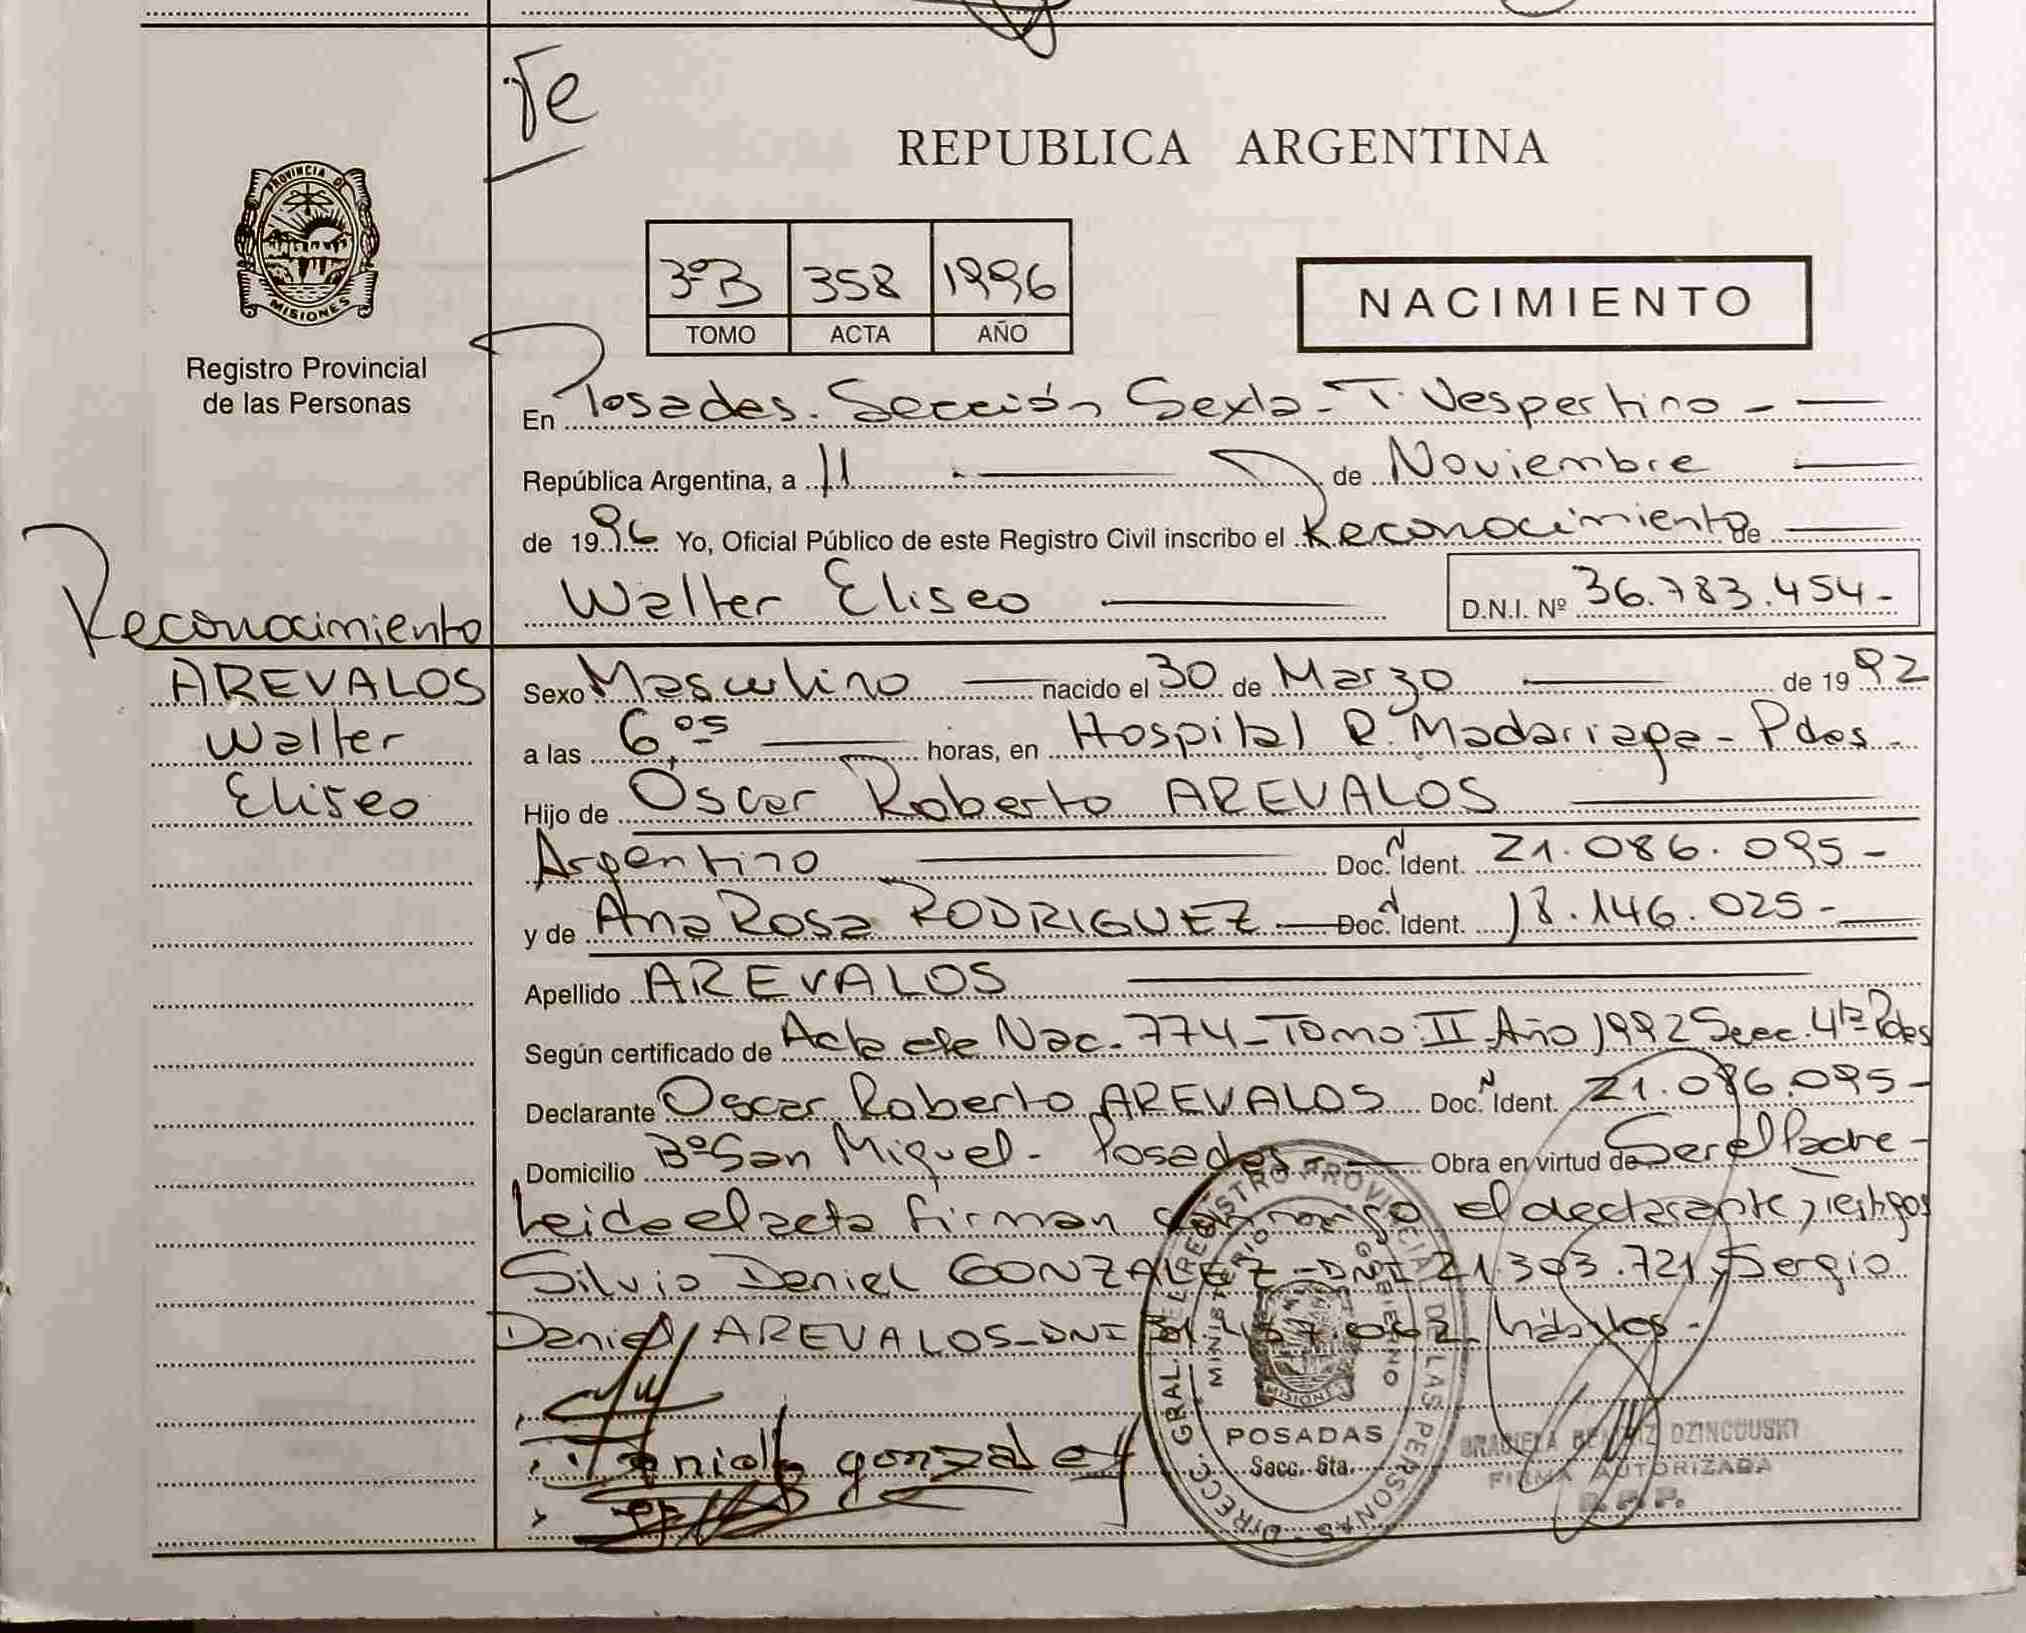 Te
REPUBLICA ARGENTINA
PROVINCIA DE
MISIONES
Registro Provincial
de las Personas
3ºB 358 1996
TOMO ACTA AÑO
NACIMIENTO
En Posadas. Sección Sexta - T. Vespertino -
República Argentina, a 11 de Noviembre
de 1996 Yo, Oficial Público de este Registro Civil inscribo el Reconocimiento de
Walter Eliseo D.N.I. Nº 36.783.454-
Reconocimiento
AREVALOS
Walter
Eliseo
Sexo Masculino nacido el 30 de Marzo de 1992
a las 6,05 horas, en Hospital R. Madariaga - Pdas -
Hijo de Oscar Roberto AREVALOS
Argentino Doc. N Ident. 21.086.095-
y de Ana Rosa RODRIGUEZ Doc. N Ident. 18.146.025-
Apellido AREVALOS
Según certificado de Acta de Nac. 774 - Tomo II Año 1992 Secc. 4ta Pdas
Declarante Oscar Roberto AREVALOS Doc. N Ident. 21.086.095-
Domicilio Bº San Miguel - Posadas - Obra en virtud de Ser el Padre -
Leida el acta firman conmigo el declarante, testigos
Silvio Daniel GONZALEZ - DNI 21.303.721, Sergio
Daniel AREVALOS - DNI hábiles -
Daniel gonzalez
DIRECC. GRAL. DEL REGISTRO PROVINCIAL DE LAS PERSONAS
MINISTERIO GOBIERNO
MISIONES
POSADAS
Secc. 6ta.
GRACIELA BEATRIZ DZINCOUSKI
FIRMA AUTORIZADA
R.P.P.